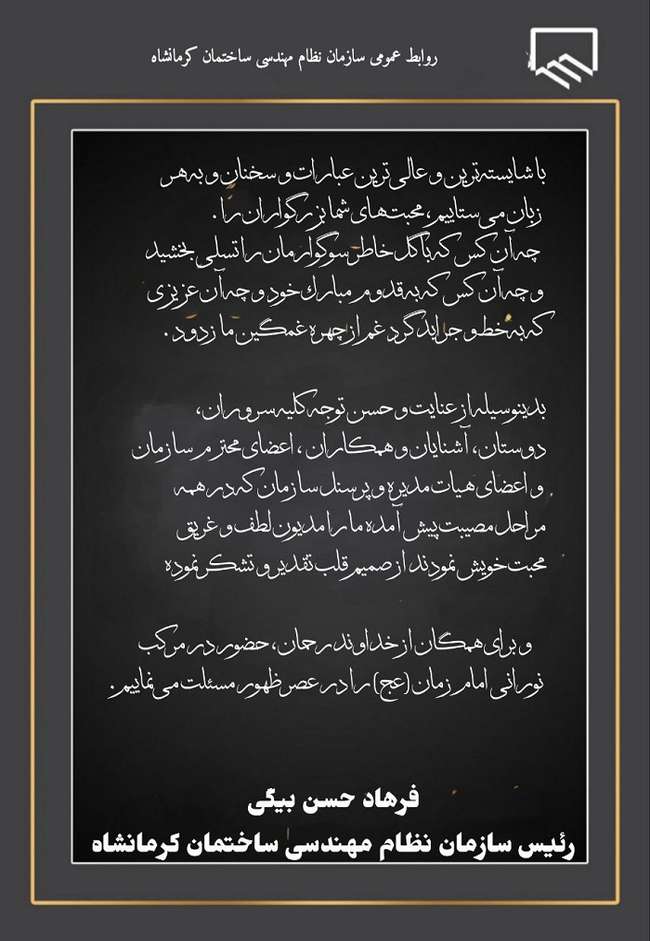 روابط عمومی سازمان نظام مهندسی ساختمان کرمانشاه
با شایسته‌ترین و عالی‌ترین عبارات و سخنان و به هر
زبان می‌ستاییم، محبت‌های شما بزرگواران را.
چه آن کس که با گل خاطر سوگوارمان را تسلی بخشید
و چه آن کس که به قدوم مبارک خود و چه آن عزیزی
که به خط و جراید گرد غم از چهره غمگین ما زدود.
بدینوسیله از عنایت و حسن توجه کلیه سروران،
دوستان، آشنایان و همکاران، اعضای محترم سازمان
و اعضای هیات مدیره و پرسنل سازمان که در همه
مراحل مصیبت پیش آمده ما را مدیون لطف و غریق
محبت خویش نمودند از صمیم قلب تقدیر و تشکر نموده
و برای همگان از خداوند رحمان، حضور در مرکب
نورانی امام زمان (عج) را در عصر ظهور مسئلت می‌نماییم.
فرهاد حسن بیگی
رئیس سازمان نظام مهندسی ساختمان کرمانشاه